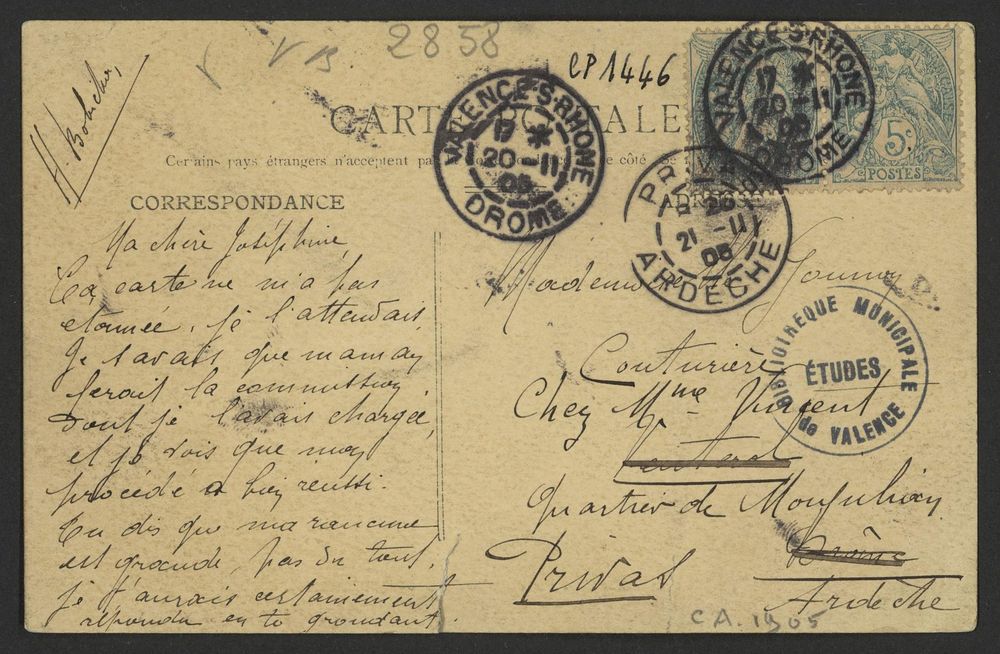 V VB 2858
CP 1446
H. Bobichon,
CARTE POSTALE
Certains pays étrangers n'acceptent pas de côté
CORRESPONDANCE
ADRESSE
VALENCE-S-RHONE
17 *
20 -11
05
DROME
VALENCE-S-RHONE
17 *
20 -11
05
DROME
PRIVAS
21 -11
05
ARDÈCHE
5c
POSTES
Ma chère Joséphine,
Ta carte ne m'a pas
étonnée, je l'attendais.
Je savais que maman
ferait la commission
dont je l'avais chargée,
et je vois que mon
procédé a bien réussi.
Tu dis que ma rancune
est grande, pas du tout,
je t'aurais certainement
répondu en te grondant.
Mademoiselle
Couturière
Chez Mme Vincent
Quartier de
Privas
Drôme
Ardèche
BIBLIOTHEQUE MUNICIPALE
ÉTUDES
de VALENCE
CA. 1905